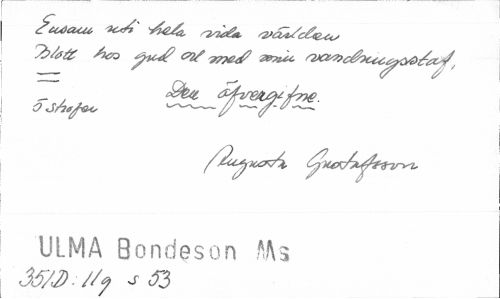 Ensam uti hela vida världen
Blott hos gud och med min vandringsstaf,
5 strofer
Den öfvergifne.
Augusta Gustafsson
ULMA Bondeson Ms
351D:11q s 53